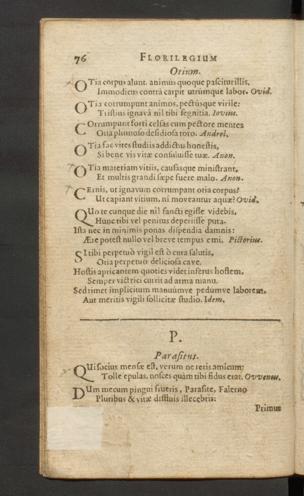 76 FLORILEGIUM
Otium.
OTia corpus alunt, animus quoque pascitur illis,
Immodicus contrà carpit utrumque labor. Ovid.
OTia corrumpunt animos, pectúsque virile:
Tristius ignavâ nil tibi segnitia.
COrrumpunt forti celsas cum pectore mentes
Otia plumoso desidiosa toro. Andrel.
OTia fac vites studiis addictus honestis,
Si bene vis vitæ consuluisse tuæ. Anon.
OTia materiam vitiis, causasque ministrant,
Et multis grandi sæpe fuere malo. Anon.
CErnis, ut ignavum corrumpant otia corpus?
Ut capiant vitium, ni moveantur aquæ? Ovid.
QUo te cunque die nil sancti egisse videbis,
Hunc tibi vel penitus deperiisse puta.
Ista nec in minimis ponas dispendia damnis:
Ære potest nullo vel breve tempus emi. Pictorius.
SI tibi perpetuò vigil est ô cura salutis,
Otia perpetuò deliciosa cave.
Hostis apricantem quoties videt inserus hostem,
Semper victrici currit ad arma manu.
Sed timet implicitum manuumve pedumve laborem,
Aut meritis vigili sollicitæ studio. Idem.
P.
Parasitus.
QUi socius mensæ est, verum ne reris amicum:
Tolle epulas, nosces quàm tibi fidus erat. Ovvenus.
DUm mecum pingui frueris, Parasite, Falerno
Pluribus & vitæ diffluis illecebris:
Primus